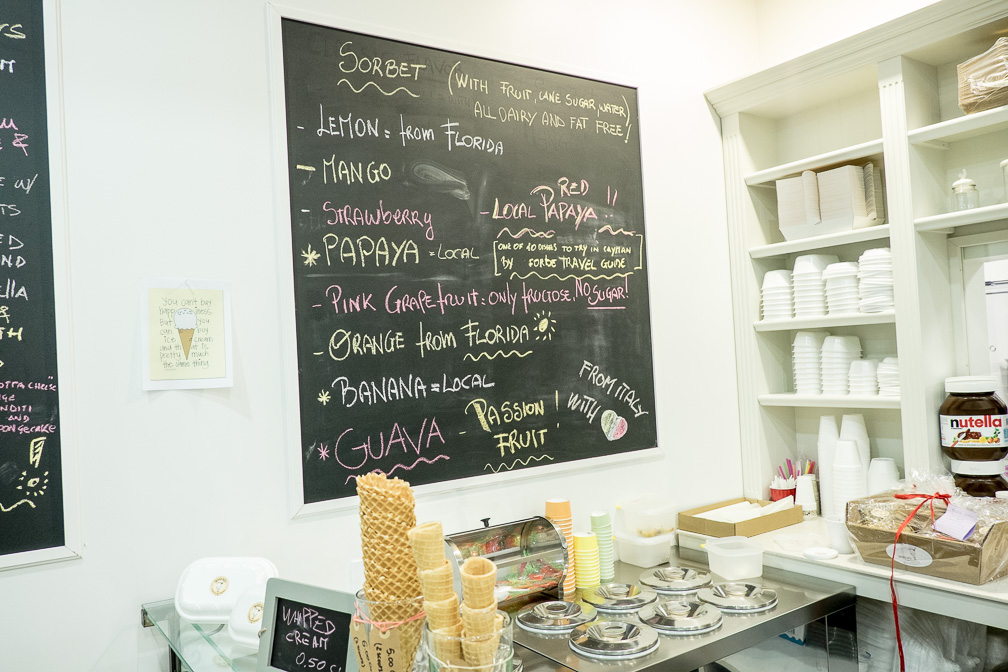 SORBET (WITH FRUIT, CANE SUGAR, WATER)
ALL DAIRY AND FAT FREE!
- LEMON = from FLORIDA
- MANGO
- STRAWBERRY
- LOCAL RED PAPAYA !!
* PAPAYA = LOCAL
ONE OF 10 DISHES TO TRY IN CAYMAN
BY FORBE TRAVEL GUIDE
- PINK GRAPEFRUIT = ONLY FRUCTOSE, NO SUGAR!
- ORANGE from FLORIDA
* BANANA = LOCAL
* GUAVA
- PASSION FRUIT !
FROM ITALY
WITH
you can't buy
happiness
But you
can buy
ice cream
and that is
pretty much
the same thing.
WHIPPED
CREAM
0.50
nutella
OTTA CHEESE
AND